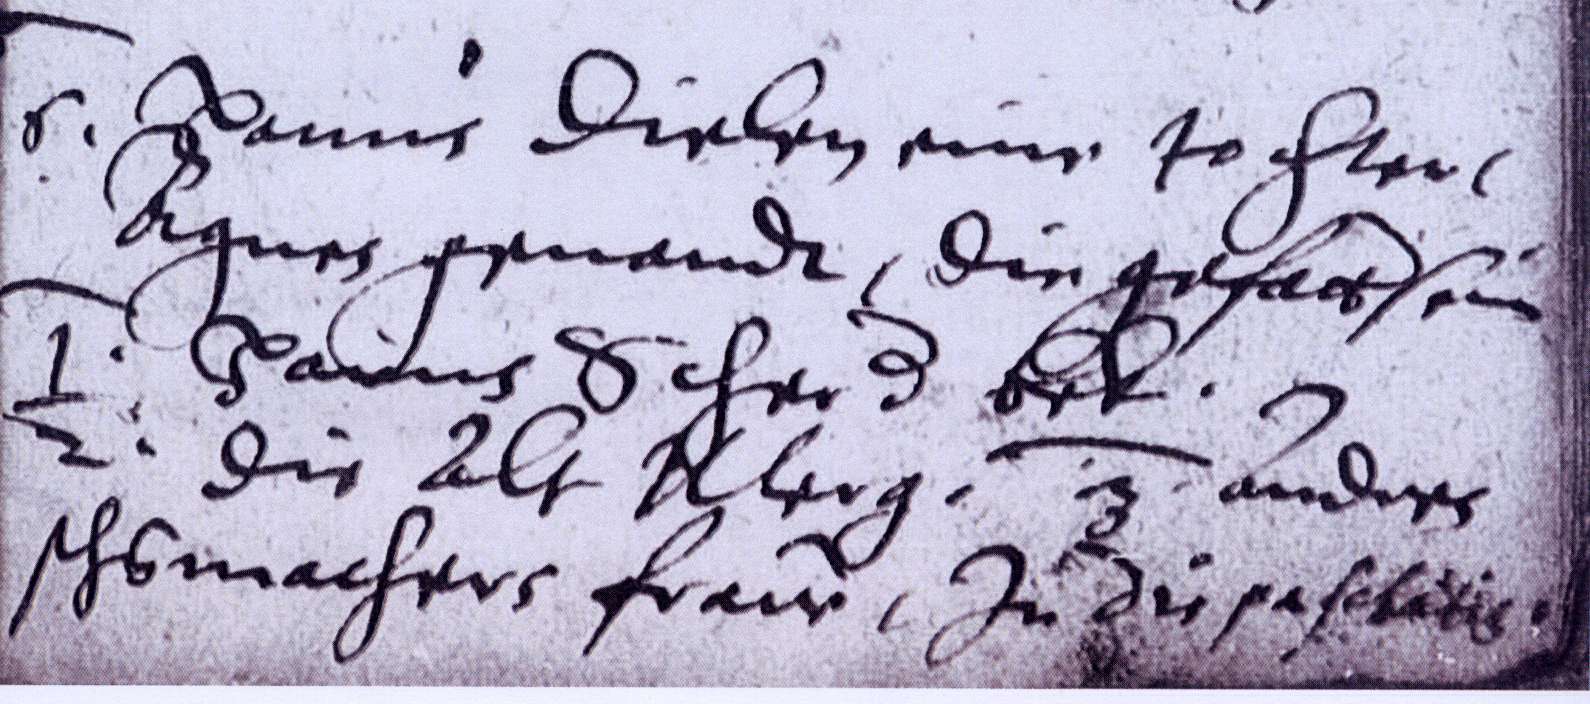 8. Pauuns Dielen eine tochter,
Agnes genandt, die gefatt sein
1. Pauuns Scherd
2. die Alt Klerg. 3. andres
schomachers fraw, Jn die paschatis.